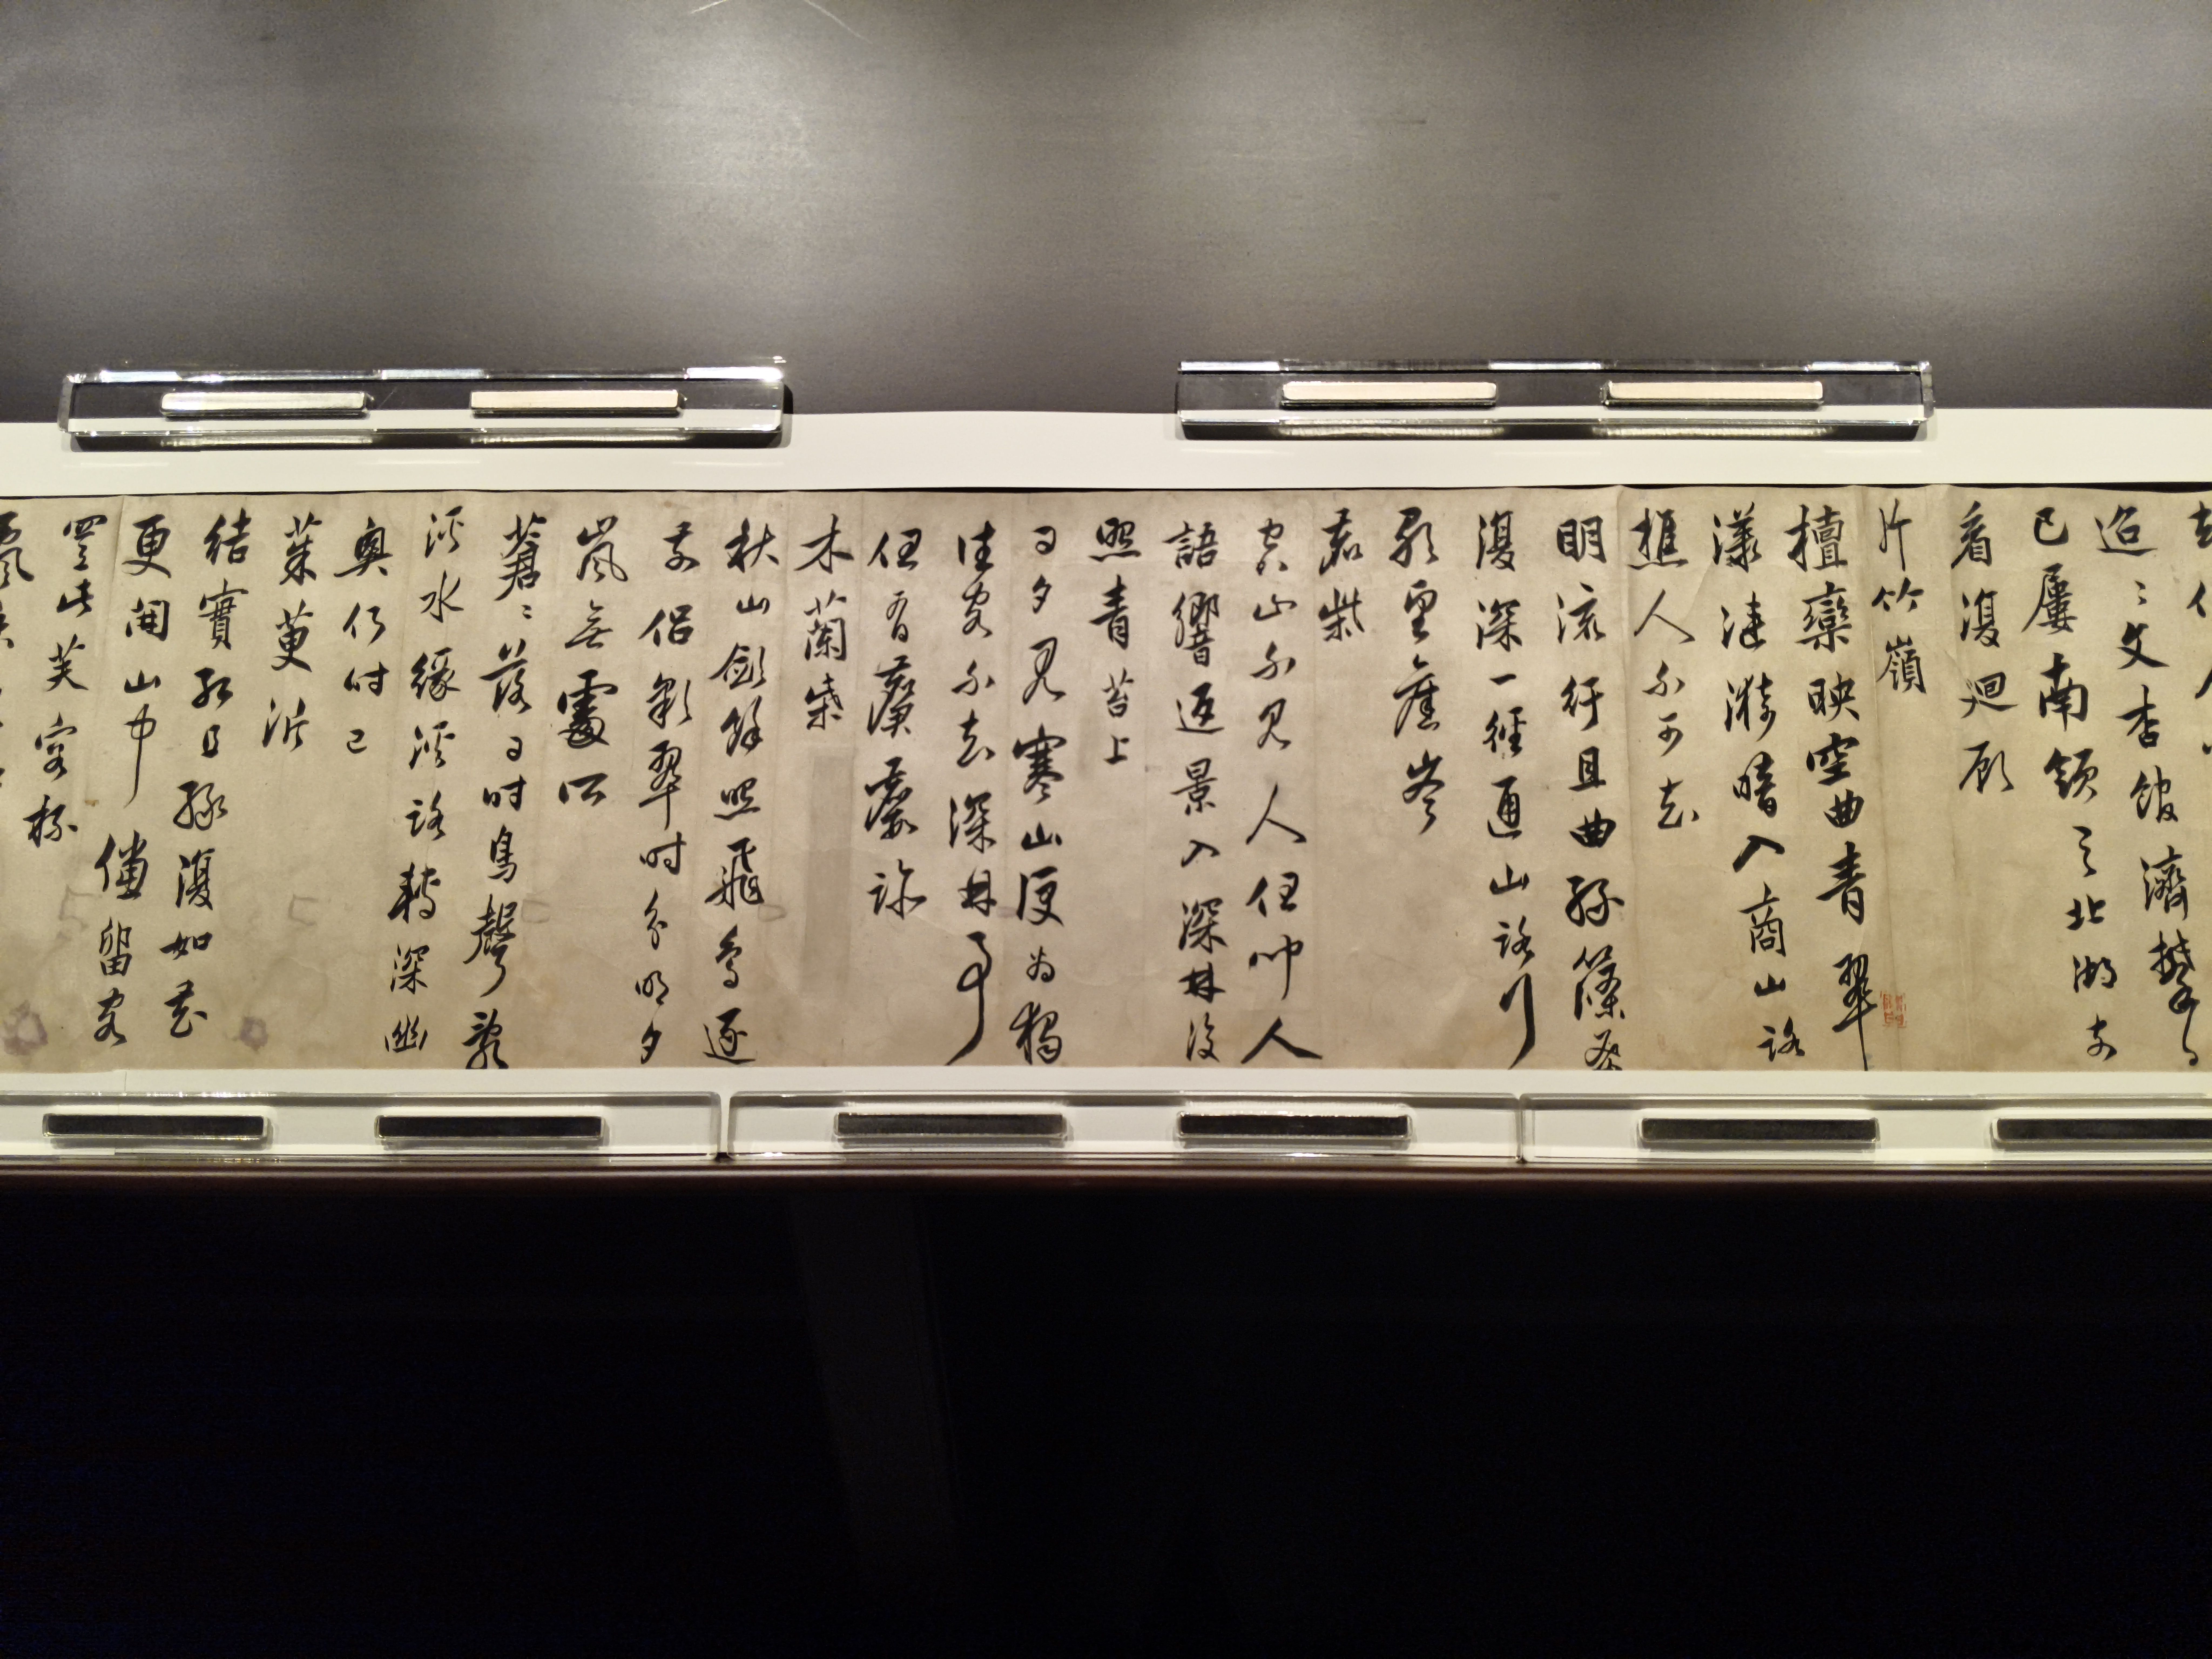 迢〻文杏館濟攀日
已屢南領與北湖前
看復迴顧
斤竹嶺
檀欒映空曲青翠
漾漣漪暗入商山路
樵人不可知
明流紆且曲綠篠密
復深一徑通山路行
歌望舊岑
鹿柴
空山不見人但聞人
語響返景入深林復
照青苔上
日夕見寒山便為獨
往客不知深林事
但有麏麚跡
木蘭柴
秋山斂餘照飛鳥逐
前侶彩翠時分明夕
嵐無處所
蒼〻落日時鳥聲亂
溪水緣溪路轉深幽
興何時已
茱萸沜
結實紅且綠復如花
更開山中儻留客
置此芙蓉杯